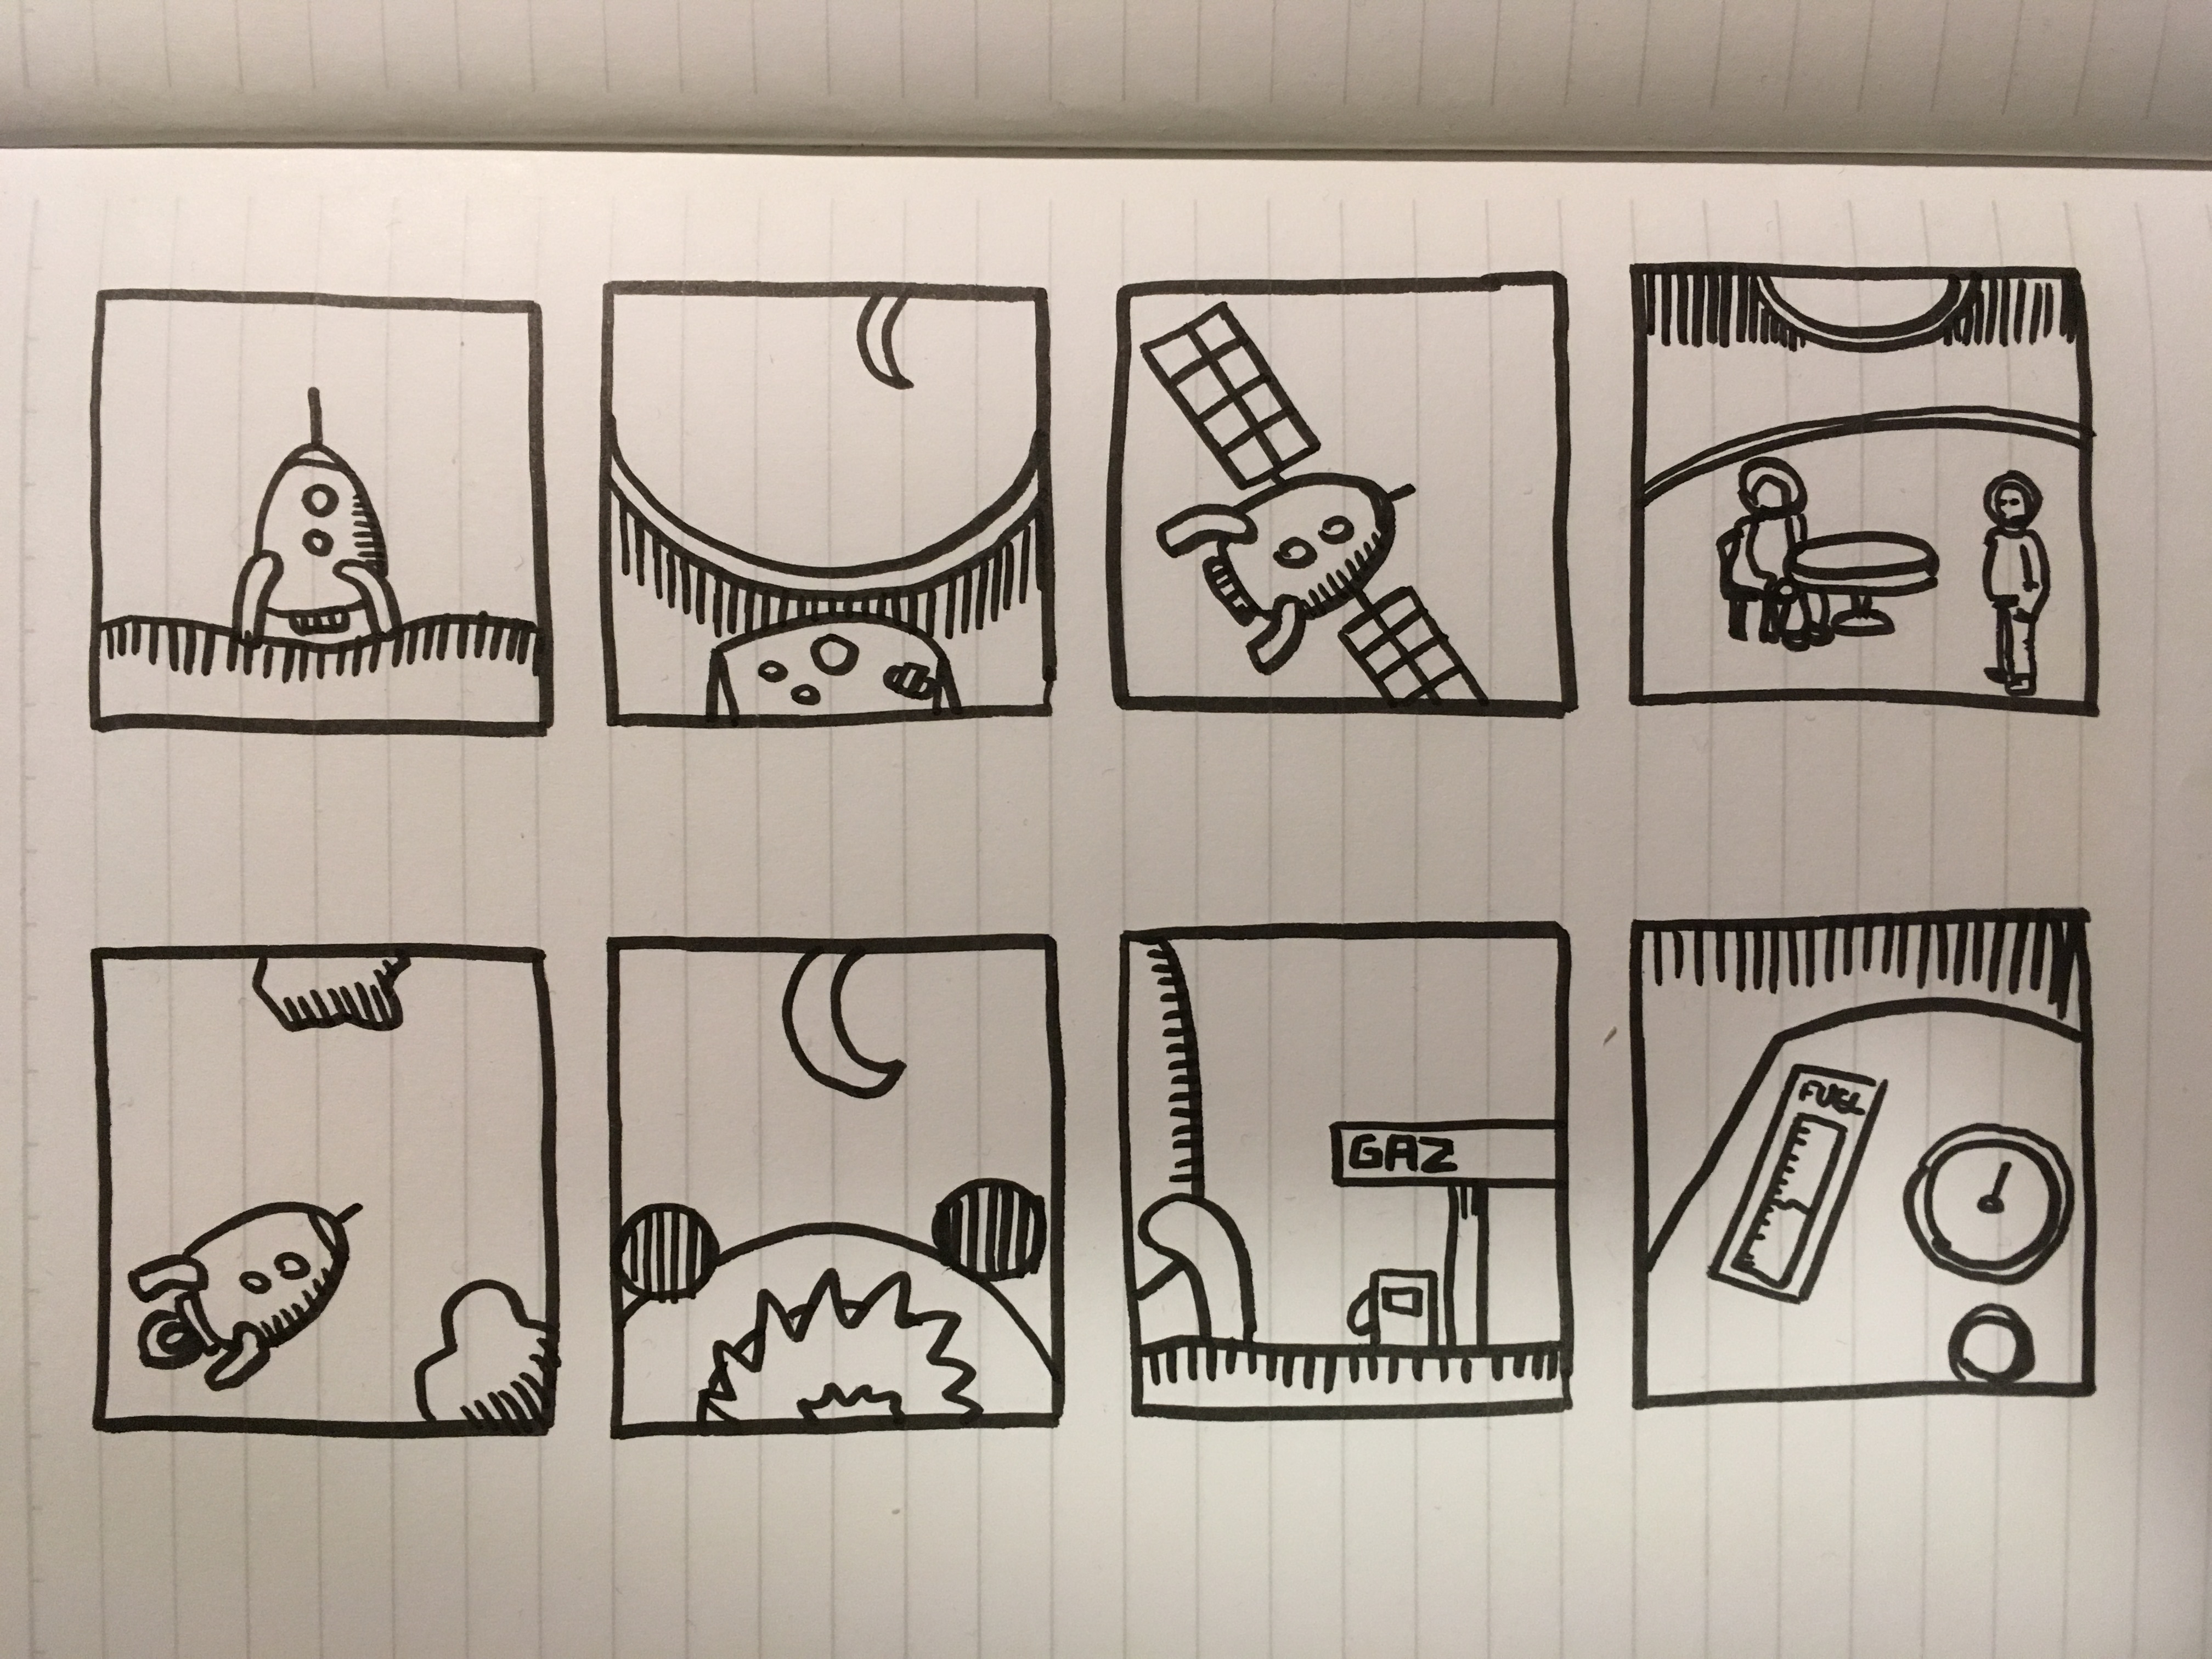 GAZ
FUEL